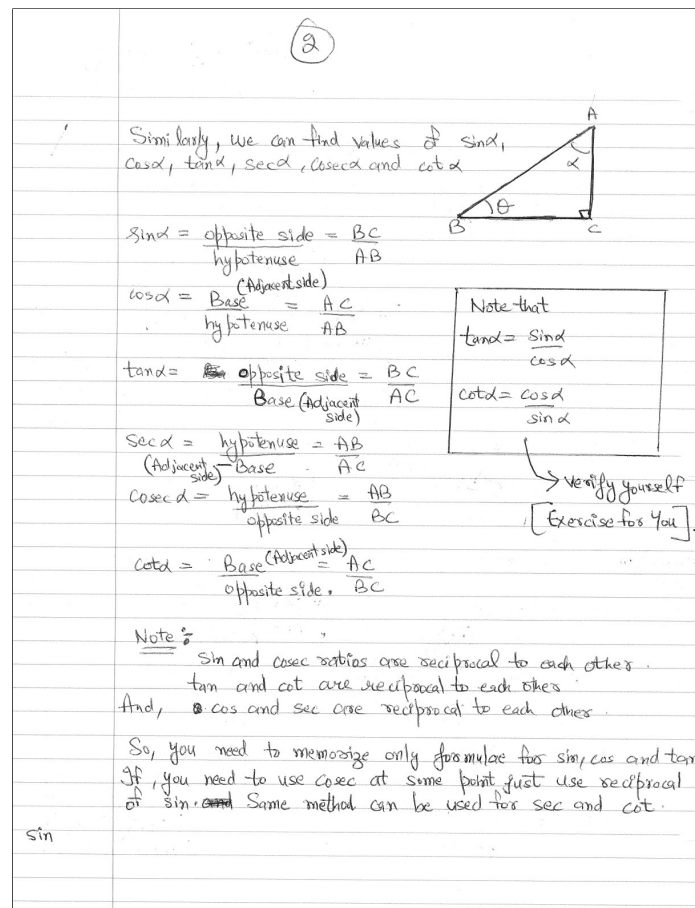 2
Similarly, we can find values of sinα,
cosα, tanα, secα, cosecα and cot α
A
α
θ
B
C
sinα = opposite side / hypotenuse = BC / AB
cosα = Base (Adjacent side) / hypotenuse = AC / AB
tanα = opposite side / Base (Adjacent side) = BC / AC
secα = hypotenuse / Base (Adjacent side) = AB / AC
Cosec α = hypotenuse / opposite side = AB / BC
cotα = Base (Adjacent side) / opposite side. = AC / BC
Note that
tanα = sinα / cosα
cotα = cosα / sinα
Verify yourself
[Exercise for You].
Note :-
Sin and cosec ratios are reciprocal to each other.
tan and cot are reciprocal to each other
And, cos and sec are reciprocal to each other.
So, you need to memorize only formulae for sin, cos and tan
If, you need to use cosec at some point just use reciprocal
of sin. Same method can be used for sec and cot.
sin